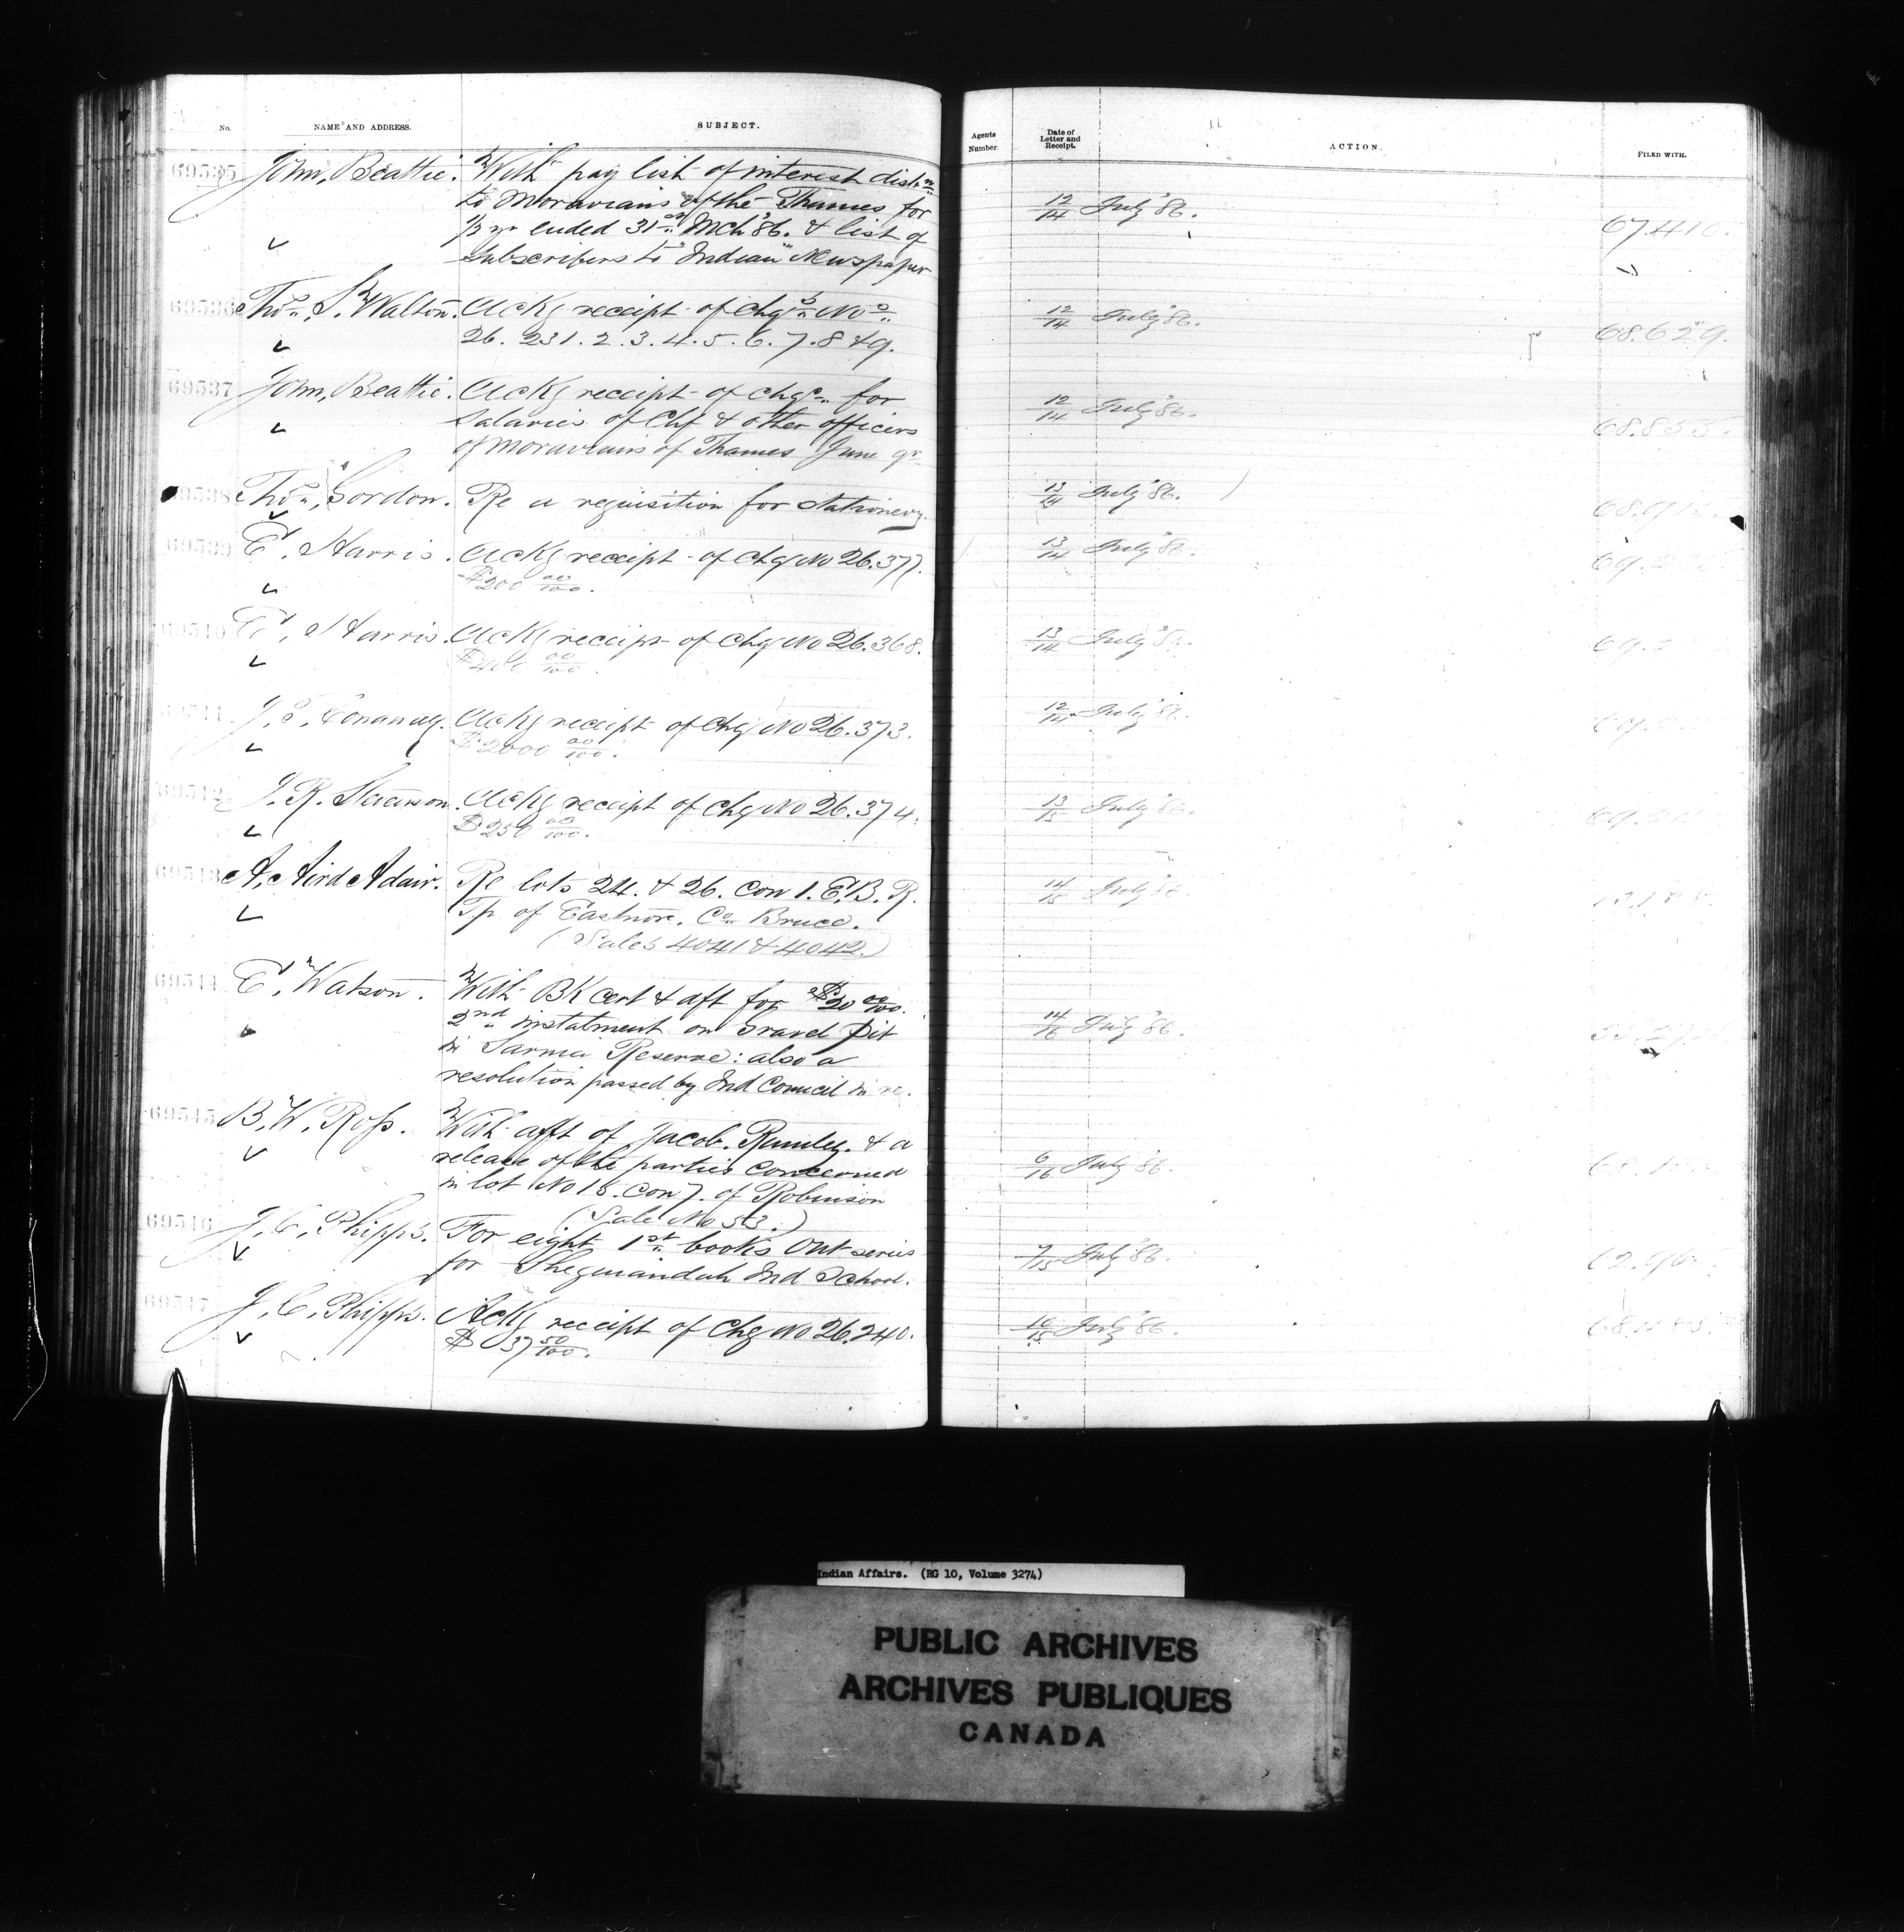 No.
NAME AND ADDRESS.
SUBJECT.
Agents Number
Date of Letter and Receipt.
ACTION.
FILED WITH.
69535 John Beattie. With pay list of interest distn 12/14 July '86. 67.410.
to Moravians of the Thames for
1/2 yr ended 31st Mch '86. & list of
Subscribers to "Indian" Newspaper
69536 Thos. S. Walton. Ackg receipt of chqs Nos 12/14 July '86. 68.629.
26. 231. 2. 3. 4. 5. 6. 7. 8 & 9.
69537 John Beattie. Ackg receipt of chqe for 12/14 July '86. 68.833.
salaries of Chf & other officers
of Moravians of Thames June qr
69538 Thos. Gordon. Re a requisition for stationery. 13/14 July '86.
69539 E. Harris. Ackg receipt of Chq No 26.377. 13/14 July '86.
$200 00/100.
69540 E. Harris. Ackg receipt of Chq No 26.368. 13/14 July '86.
$400 00/100.
Ackg receipt of Chq No 26.373. 12/14 July '86.
$2000 00/100.
69542 J. R. Stevenson. Ackg receipt of Chq No 26.374. 13/15 July '86.
$250 00/100.
69543 A. Aird Adair. Re lots 24. & 26. Con 1. E.B.R. 14/15 July '86.
Tp of Eastnor. Co. Bruce.
(Sales 4041 & 4042.)
69544 E. Watson. With BK cert & aft for $20 00/100. 14/16 July '86.
2nd instalment on Gravel pit
in Sarnia Reserve: also a
resolution passed by Ind Council in re.
69545 B. W. Ross. With afft of Jacob. Rumley. & a 6/16 July '86.
release of the parties concerned
in lot No 15. Con 7. of Robinson
(Sale No 53.)
69546 J. C. Phipps. For eight 1st books Ont series 7/15 July '86.
for Sheguiandah Ind School.
69547 J. C. Phipps. Ackg receipt of Chq No 26.240. 10/15 July '86.
$37 50/100.
Indian Affairs. (RG 10, Volume 3274)
PUBLIC ARCHIVES
ARCHIVES PUBLIQUES
CANADA